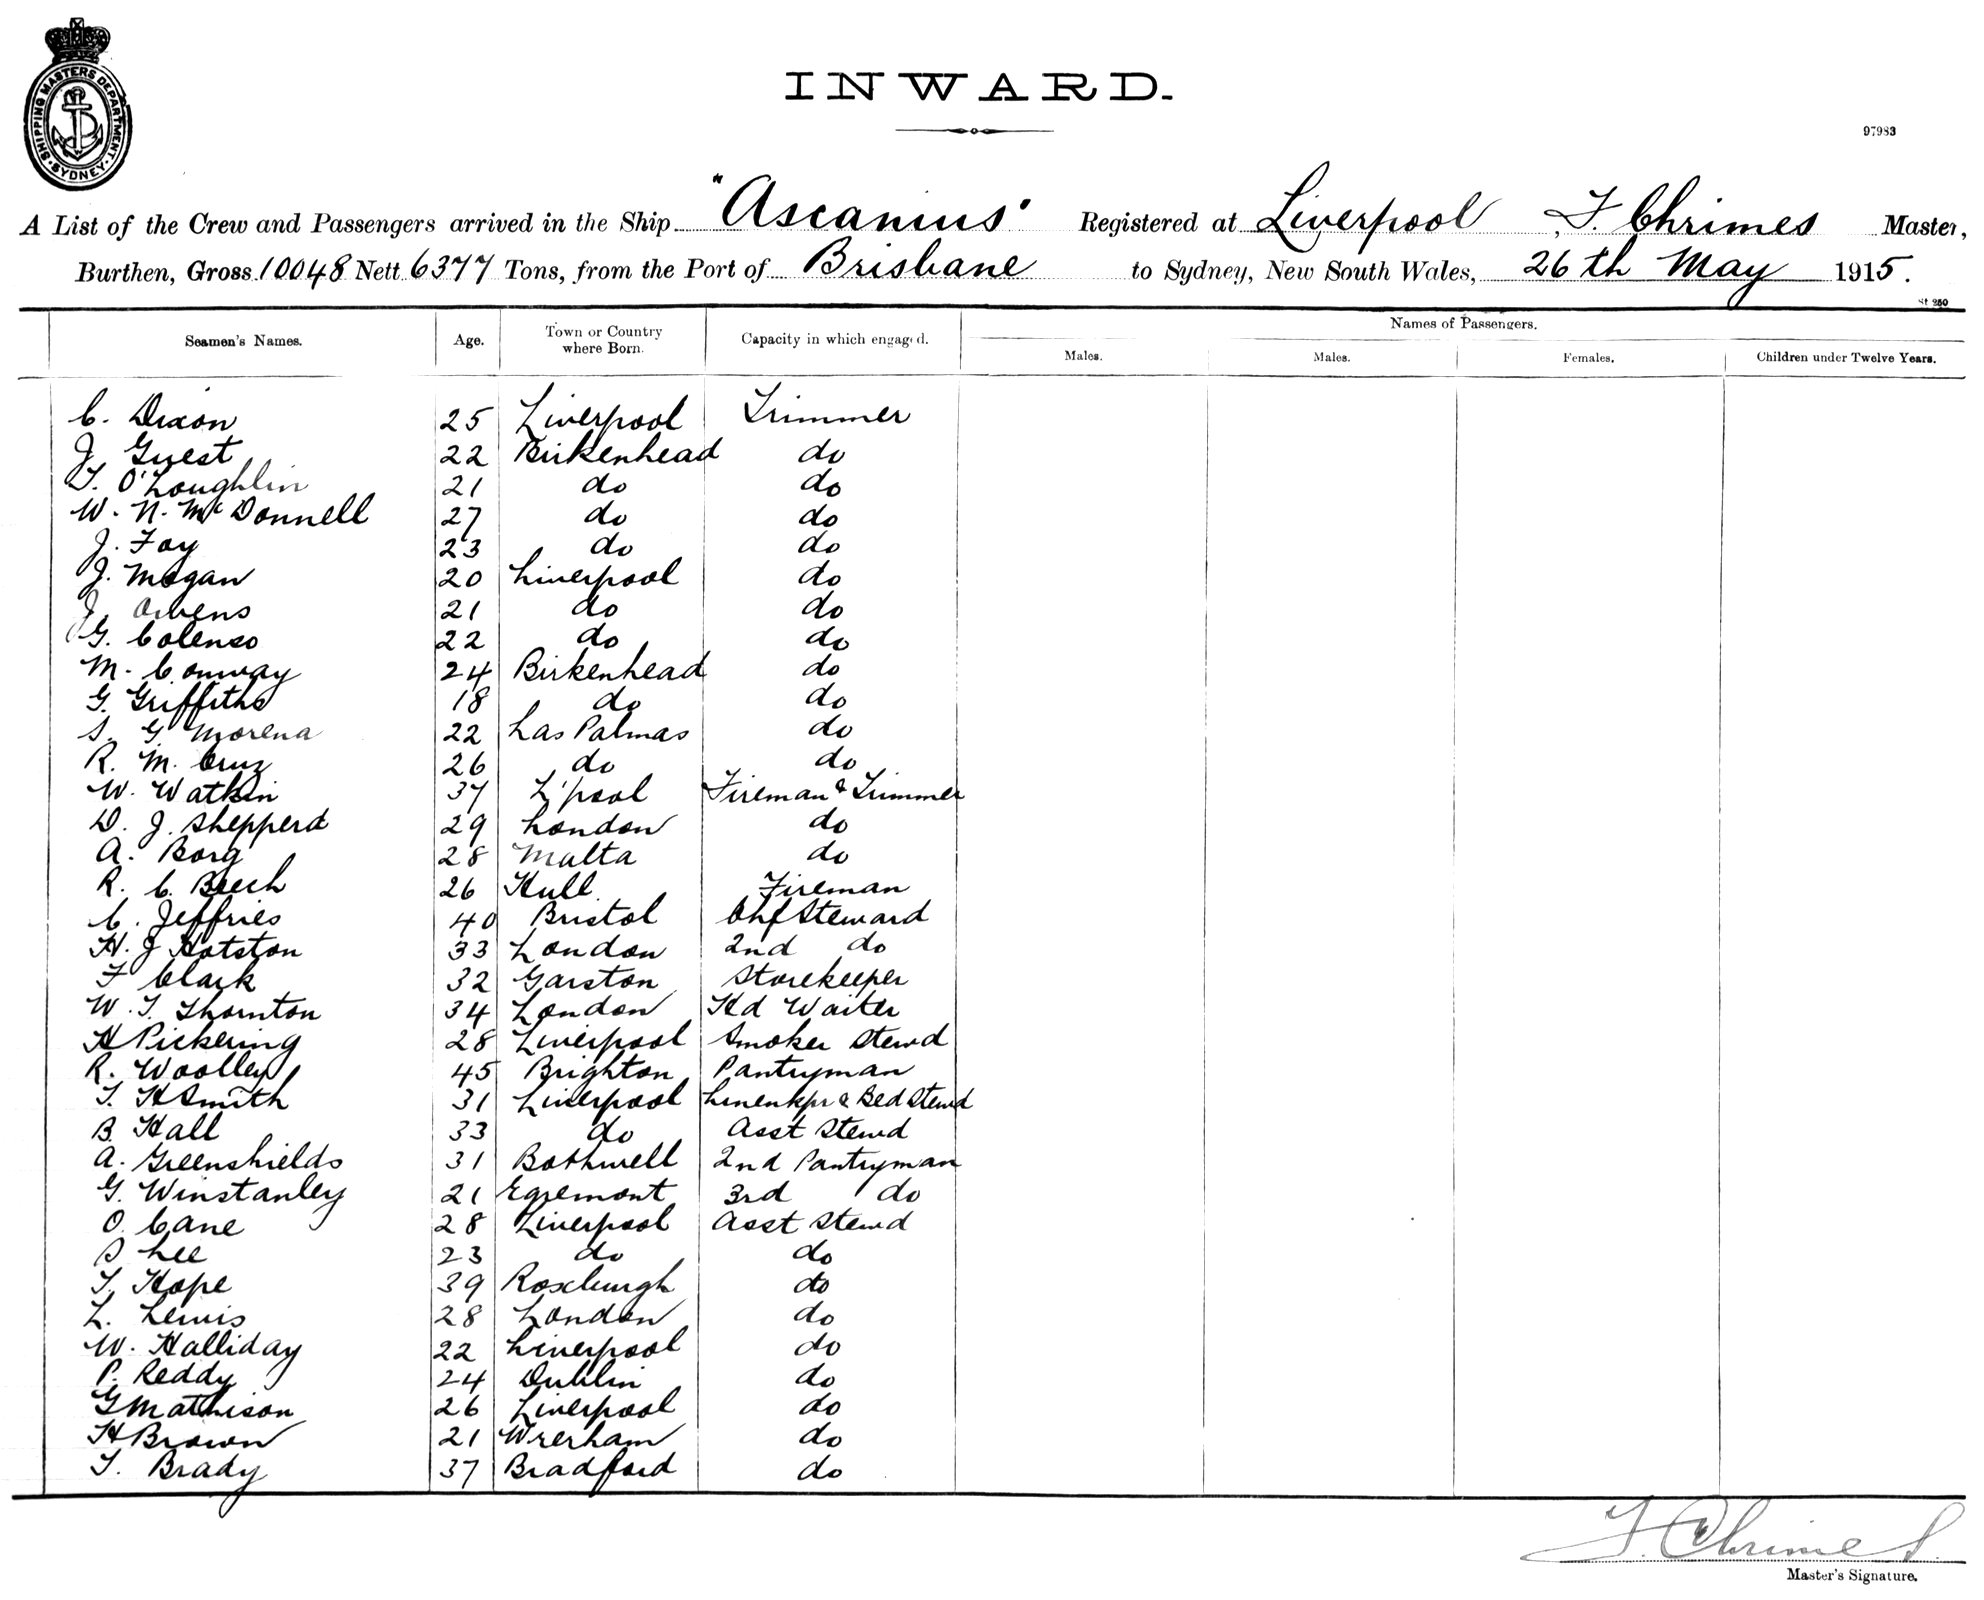 SHIPPING MASTERS DEPARTMENT. SYDNEY
INWARD.
97983
A List of the Crew and Passengers arrived in the Ship "Ascanius" Registered at Liverpool F. Chrimes Master,
Burthen, Gross 10048 Nett 6377 Tons, from the Port of Brisbane to Sydney, New South Wales, 26th May 1915.
St 250
Seamen's Names. Age. Town or Country where Born. Capacity in which engaged. Names of Passengers.
Males. Males. Females. Children under Twelve Years.
C. Dixon 25 Liverpool Trimmer
J. Guest 22 Birkenhead do
T. O'Loughlin 21 do do
W. N. McDonnell 27 do do
J. Foy 23 do do
J. Mogan 20 Liverpool do
J. Owens 21 do do
G. Colenso 22 do do
M. Conway 24 Birkenhead do
G. Griffiths 18 do do
S. G Morena 22 Las Palmas do
R. M. Cruz 26 do do
W. Watkin 37 L'pool Fireman & Trimmer
D. J. Shepperd 29 London do
A. Borg 28 Malta do
R. C. Beech 26 Hull Fireman
C. Jeffries 40 Bristol Chf Steward
H. J Hotston 33 London 2nd do
F Clark 32 Garston Storekeeper
W. T. Thornton 34 London Hd Waiter
H Pickering 28 Liverpool Smoker Stewd
R. Woolley 45 Brighton Pantryman
T. H Smith 31 Liverpool Linenkpr & Bed Stewd
B. Hall 33 do Asst Stewd
A. Greenshields 31 Bothwell 2nd Pantryman
G. Winstanley 21 Egremont 3rd do
O. Cane 28 Liverpool Asst Stewd
Lee 23 do do
T. Hope 39 Roxburgh do
L. Lewis 28 London do
W. Halliday 22 Liverpool do
P. Reddy 24 Dublin do
G Mathison 26 Liverpool do
H Brown 21 Wrexham do
T. Brady 37 Bradford do
F. Chrimes.
Master's Signature.